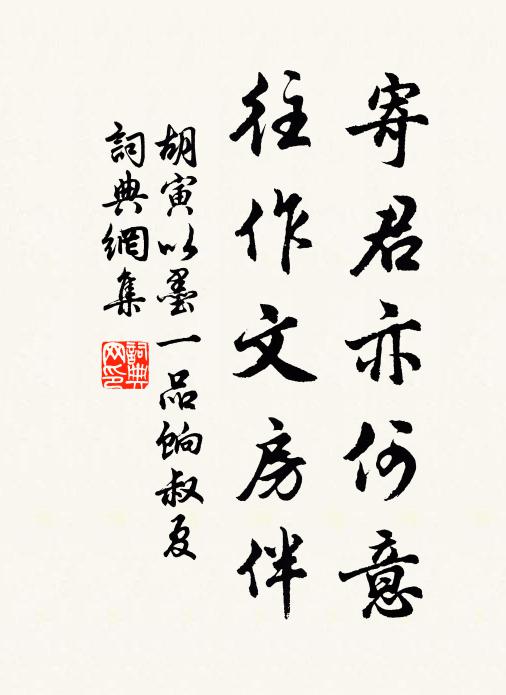 寄君亦何意
往作文房伴
胡寅以墨一品餉叔夏
詞典網集
詞典網印